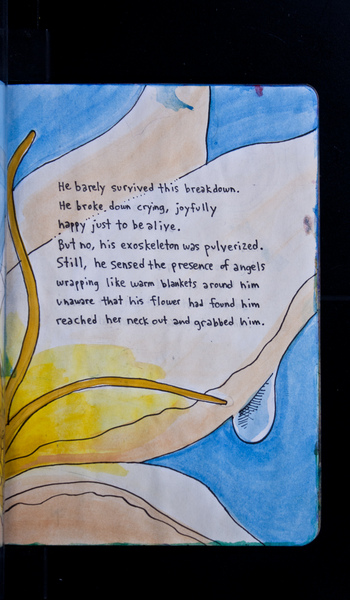 He barely survived this breakdown.
He broke down crying, joyfully
happy just to be alive.
But no, his exoskeleton was pulverized.
Still, he sensed the presence of angels
wrapping like warm blankets around him
unaware that his flower had found him
reached her neck out and grabbed him.